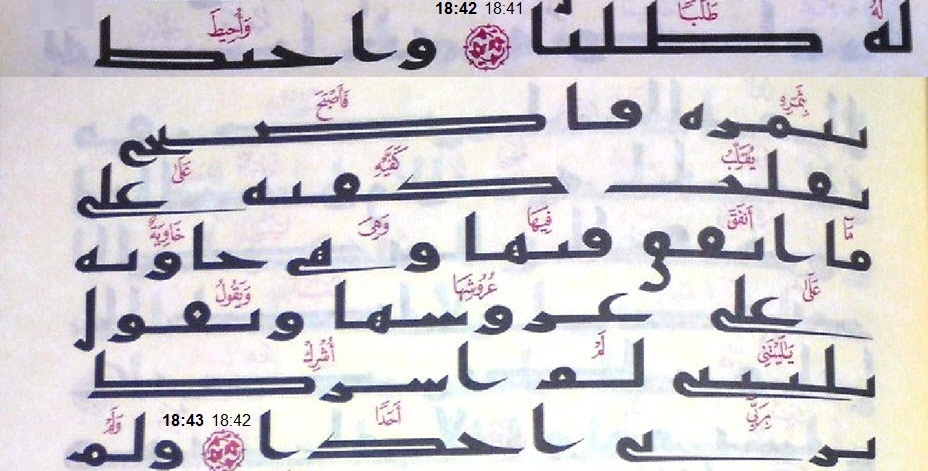 18:42 18:41
لَهُ طَلَبًا وَأُحِيطَ
له طلبا واحيط
بِثَمَرِهِ فَأَصْبَحَ
بثمره فاصبح
يُقَلِّبُ كَفَّيْهِ عَلَىٰ
يقلب كفيه على
مَآ أَنفَقَ فِيهَا وَهِىَ خَاوِيَةٌ
ما انفق فيها وهى خاويه
عَلَىٰ عُرُوشِهَا وَيَقُولُ
على عروشها ويقول
يَٰلَيْتَنِى لَمْ أُشْرِكْ
يليتنى لم اشرك
18:43 18:42
بِرَبِّىٓ أَحَدًا وَلَمْ
بربى احدا ولم